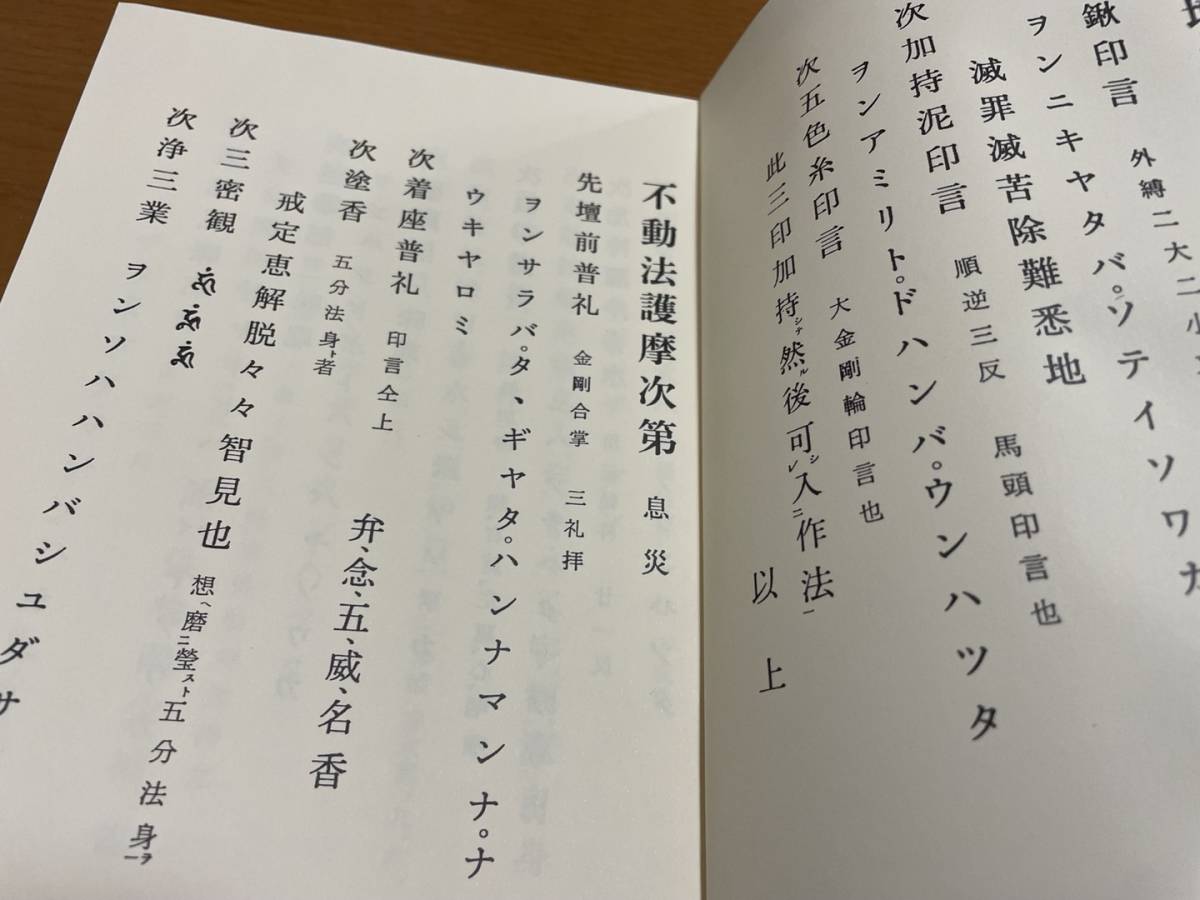 鍬印言 外縛二大二小
ヲンニキヤタバ。ソテイソワカ
滅罪滅苦除難悉地
次加持泥印言 順逆三反 馬頭印言也
ヲンアミリト。ドハンバ。ウンハツタ
次五色糸印言 大金剛輪印言也
此三印加持シテ然ル後可シレ入ニ作法一 以上
不動法護摩次第 息災
先壇前普礼 金剛合掌 三礼拝
ヲンサラバ。タ、ギヤタ。ハンナマンナ。ナ
ウキヤロミ
次着座普礼 印言仝上
次塗香 五分法身ト者 弁、念、五、威、名香
戒定恵解脱々々智見也 想ヘ磨ニ瑩スト五分法身一ヲ
次三密観
次浄三業 ヲンソハハンバシユダサ